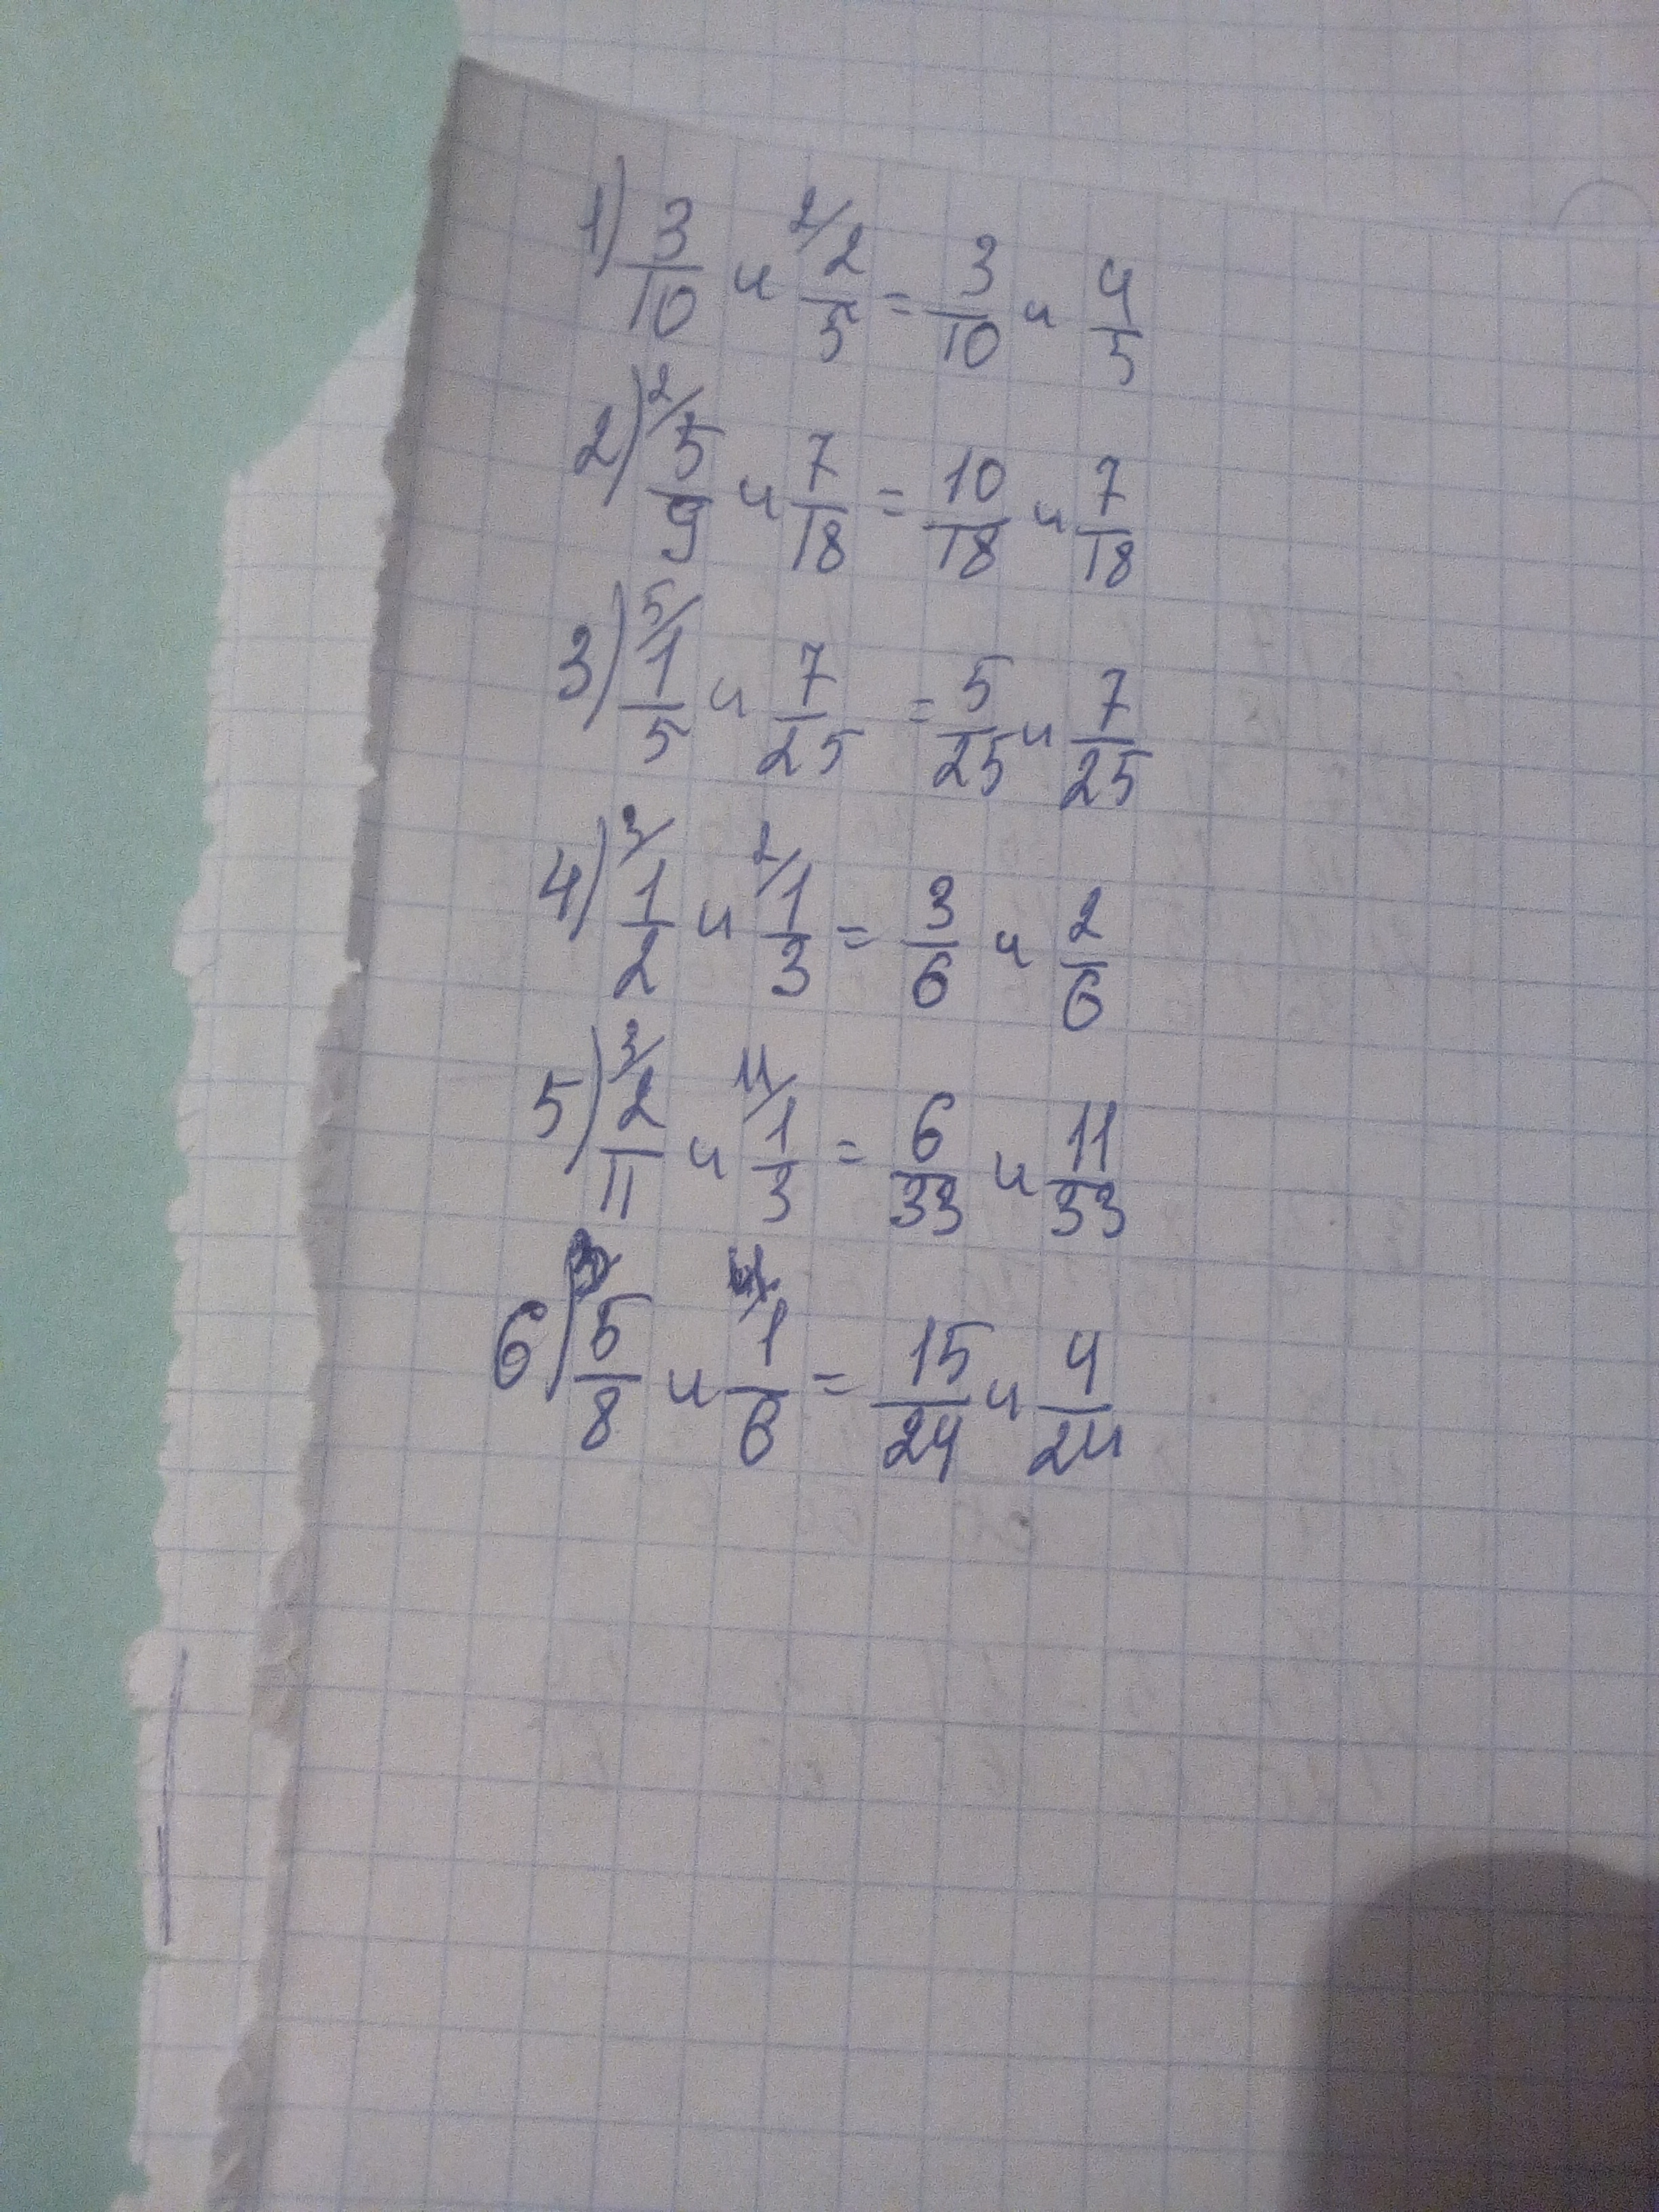 1) 3/10 и 2/ 2/5 = 3/10 и 4/5
2) 2/ 5/9 и 7/18 = 10/18 и 7/18
3) 5/ 1/5 и 7/25 = 5/25 и 7/25
4) 3/ 1/2 и 2/ 1/3 = 3/6 и 2/6
5) 3/ 2/11 и 11/ 1/3 = 6/33 и 11/33
6) 3/ 5/8 и 4/ 1/6 = 15/24 и 4/24